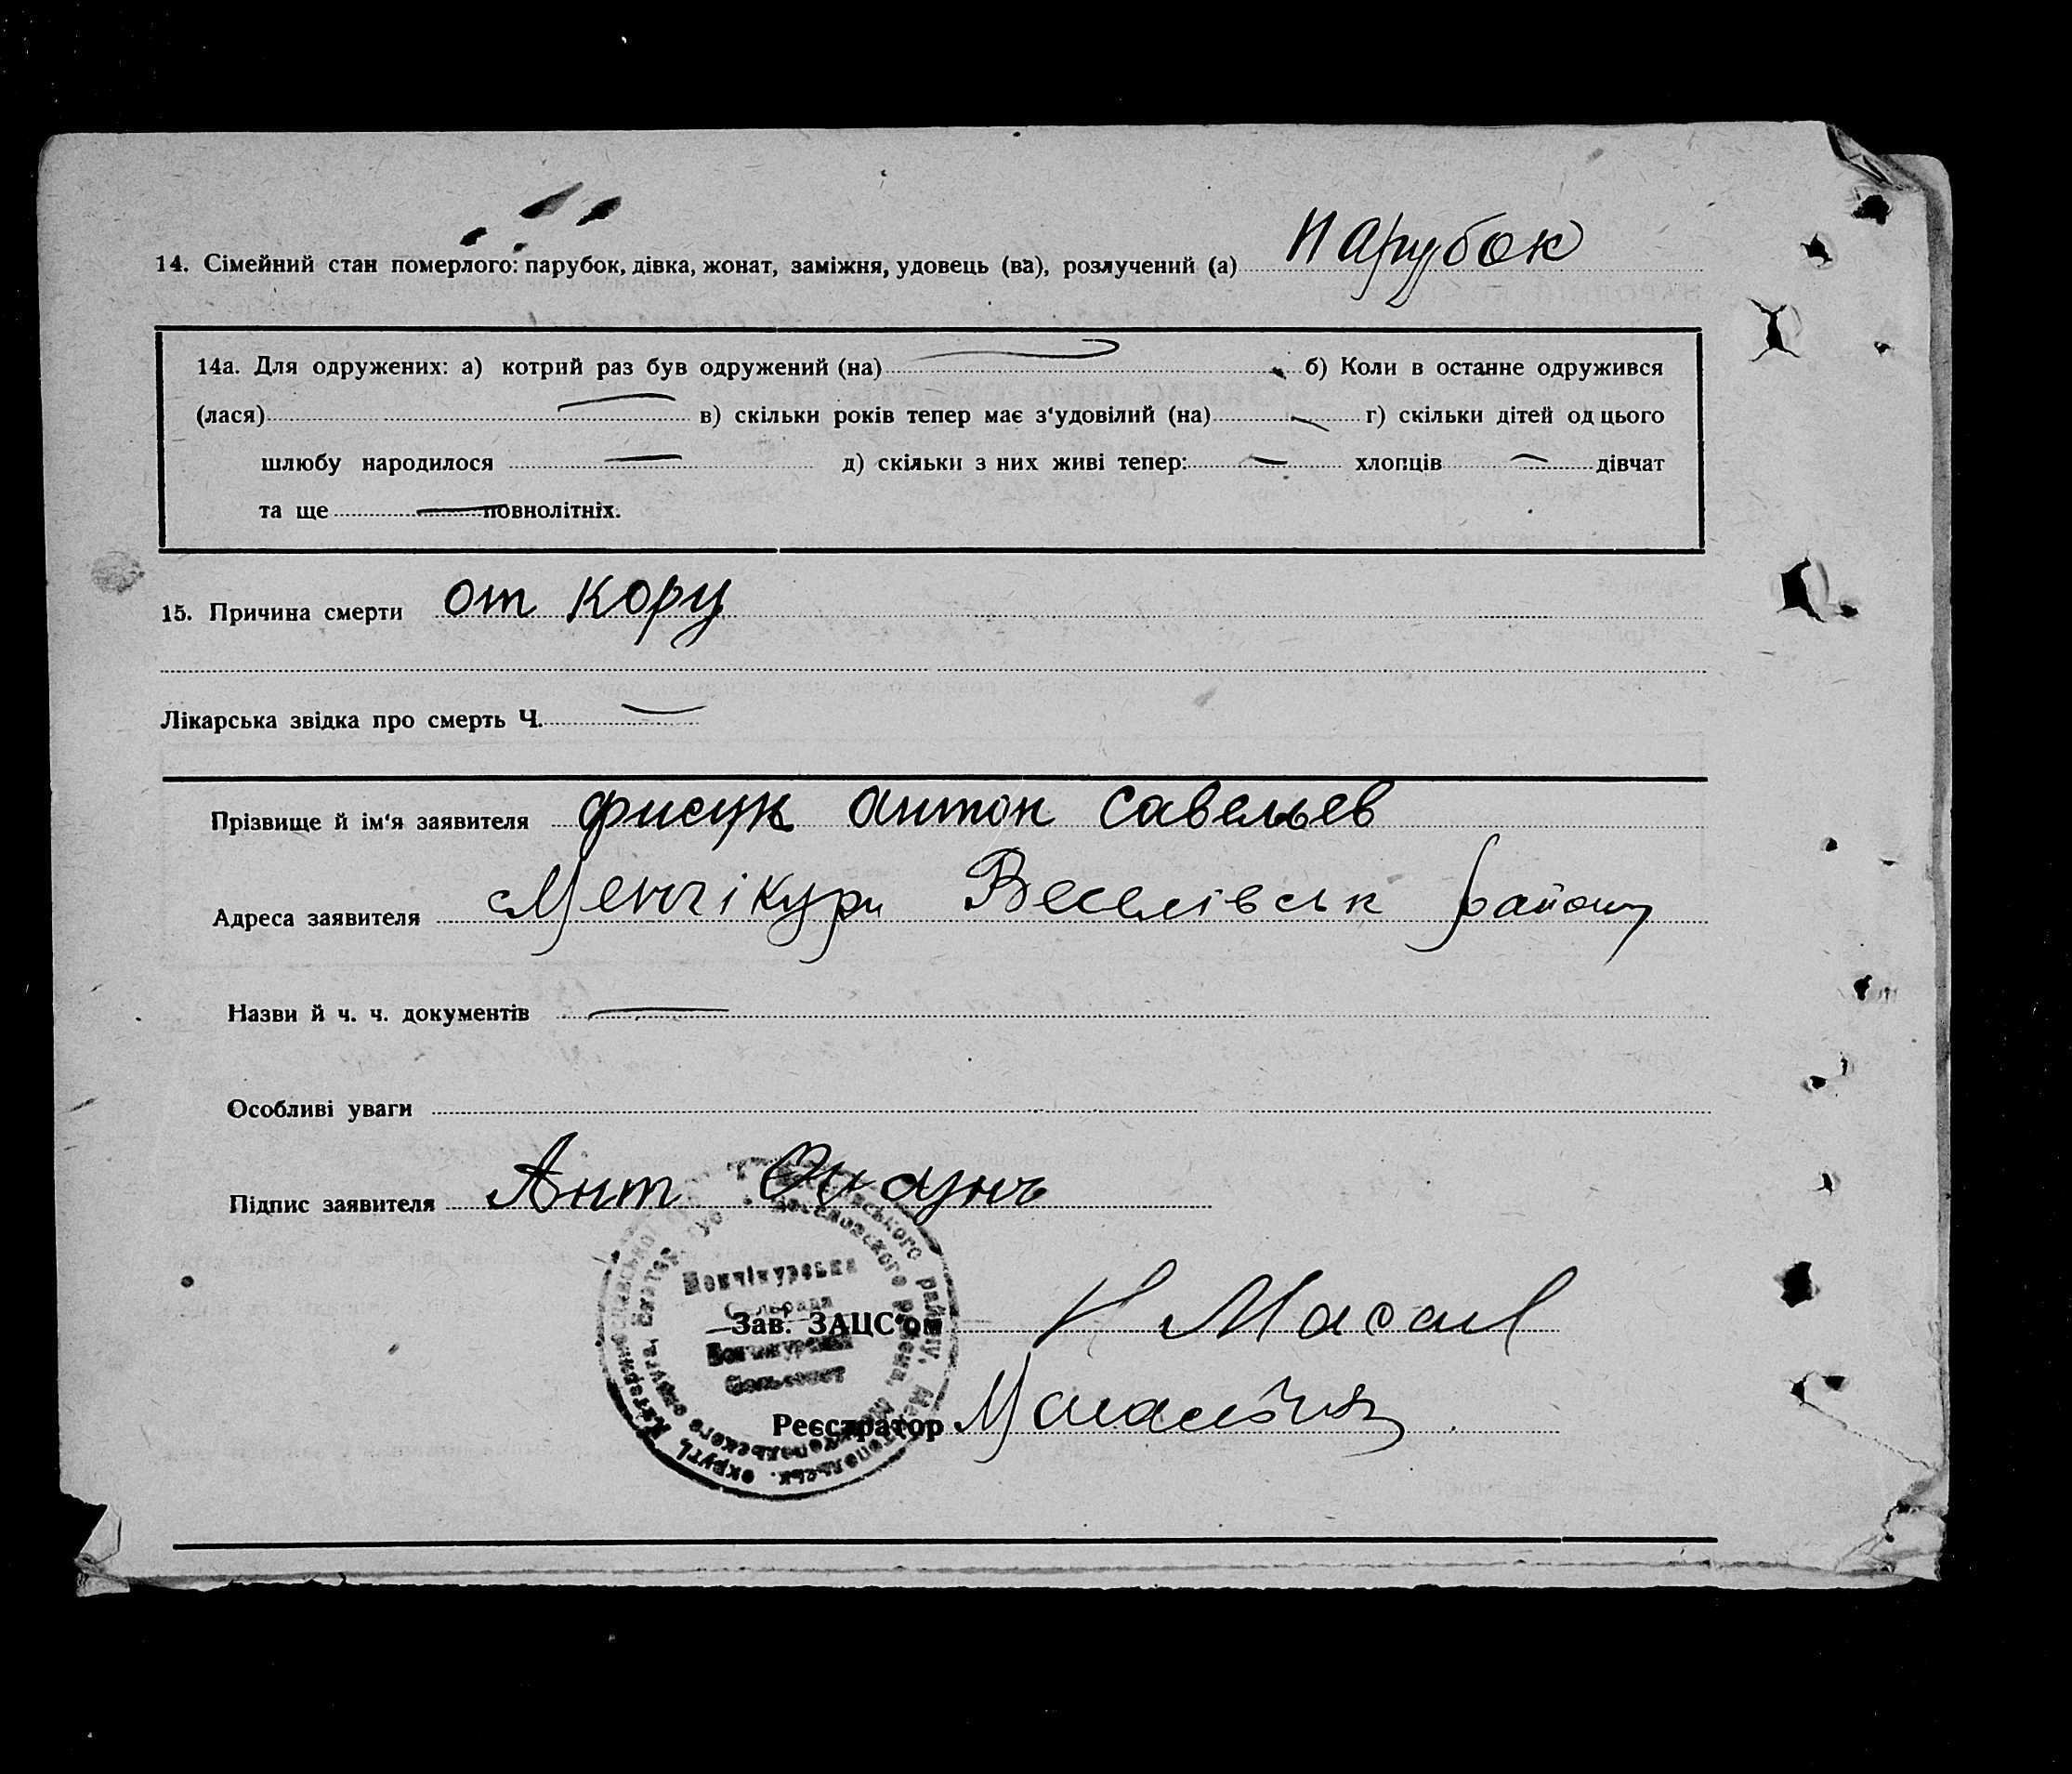 14. Сімейний стан померлого: парубок, дівка, жонат, заміжня, удовець (ва), розлучений (а) парубок
14а. Для одружених: а) котрий раз був одружений (на) б) Коли в останне одружився
(лася) в) скільки років тепер має з'удовілий (на) г) скільки дітей од цього
шлюбу народилося д) скільки з них живі тепер: хлопців дівчат
та ще повнолітніх.
15. Причина смерти от кору
Лікарська звідка про смерть Ч.
Прізвище й ім'я заявителя фисук антон савельев
Адреса заявителя Менчікури Веселівськ району
Назви й ч. ч. документів
Особливі уваги
Підпис заявителя Ант
Менчікурська
Сільрада
Зав. ЗАЦС'ом
Менчикурский
Сельсовет
Реєстратор